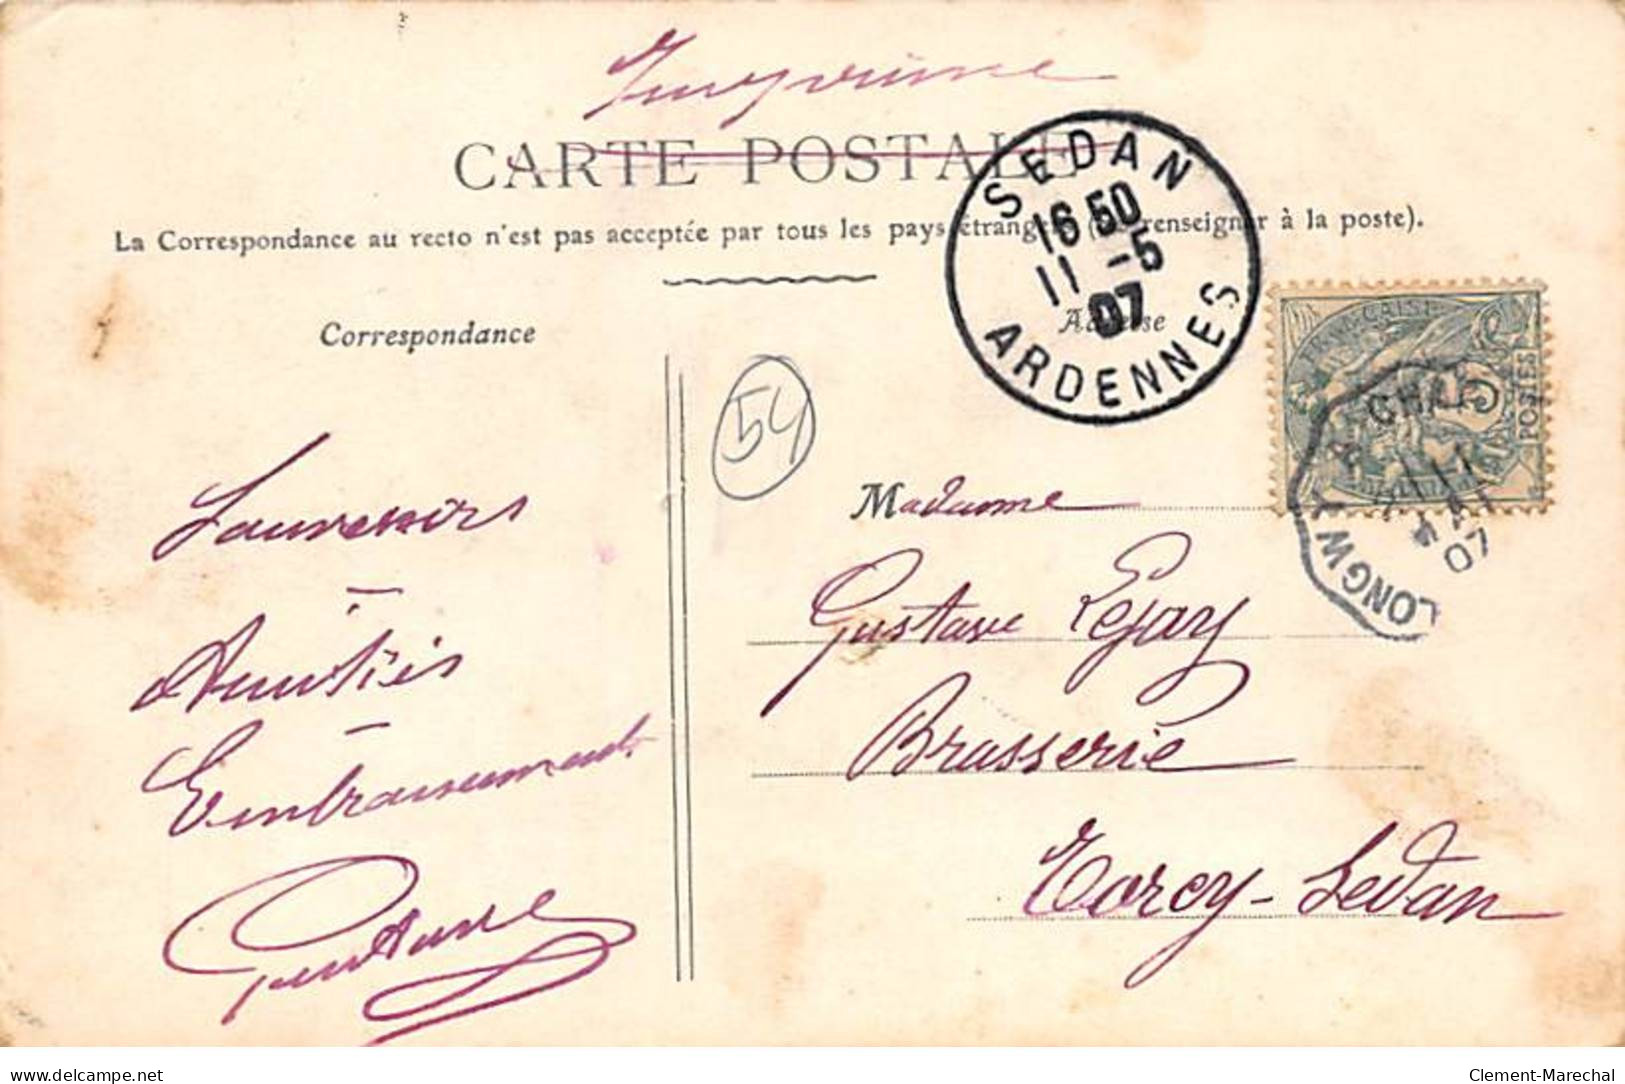 Imprimé
CARTE POSTALE
La Correspondance au recto n'est pas acceptée par tous les pays étrangers (se renseigner à la poste).
SEDAN
16 50
11 -5
07
ARDENNES
Correspondance
Adresse
FRANÇAISE
POSTES
5
LONGWY A CHARL
11
07
54
Souvenirs
Amitiés
Embrassements
Gustave
Madame
Gustave Lejay
Brasserie
Torcy-Sedan
delcampe.net
Clement-Marechal